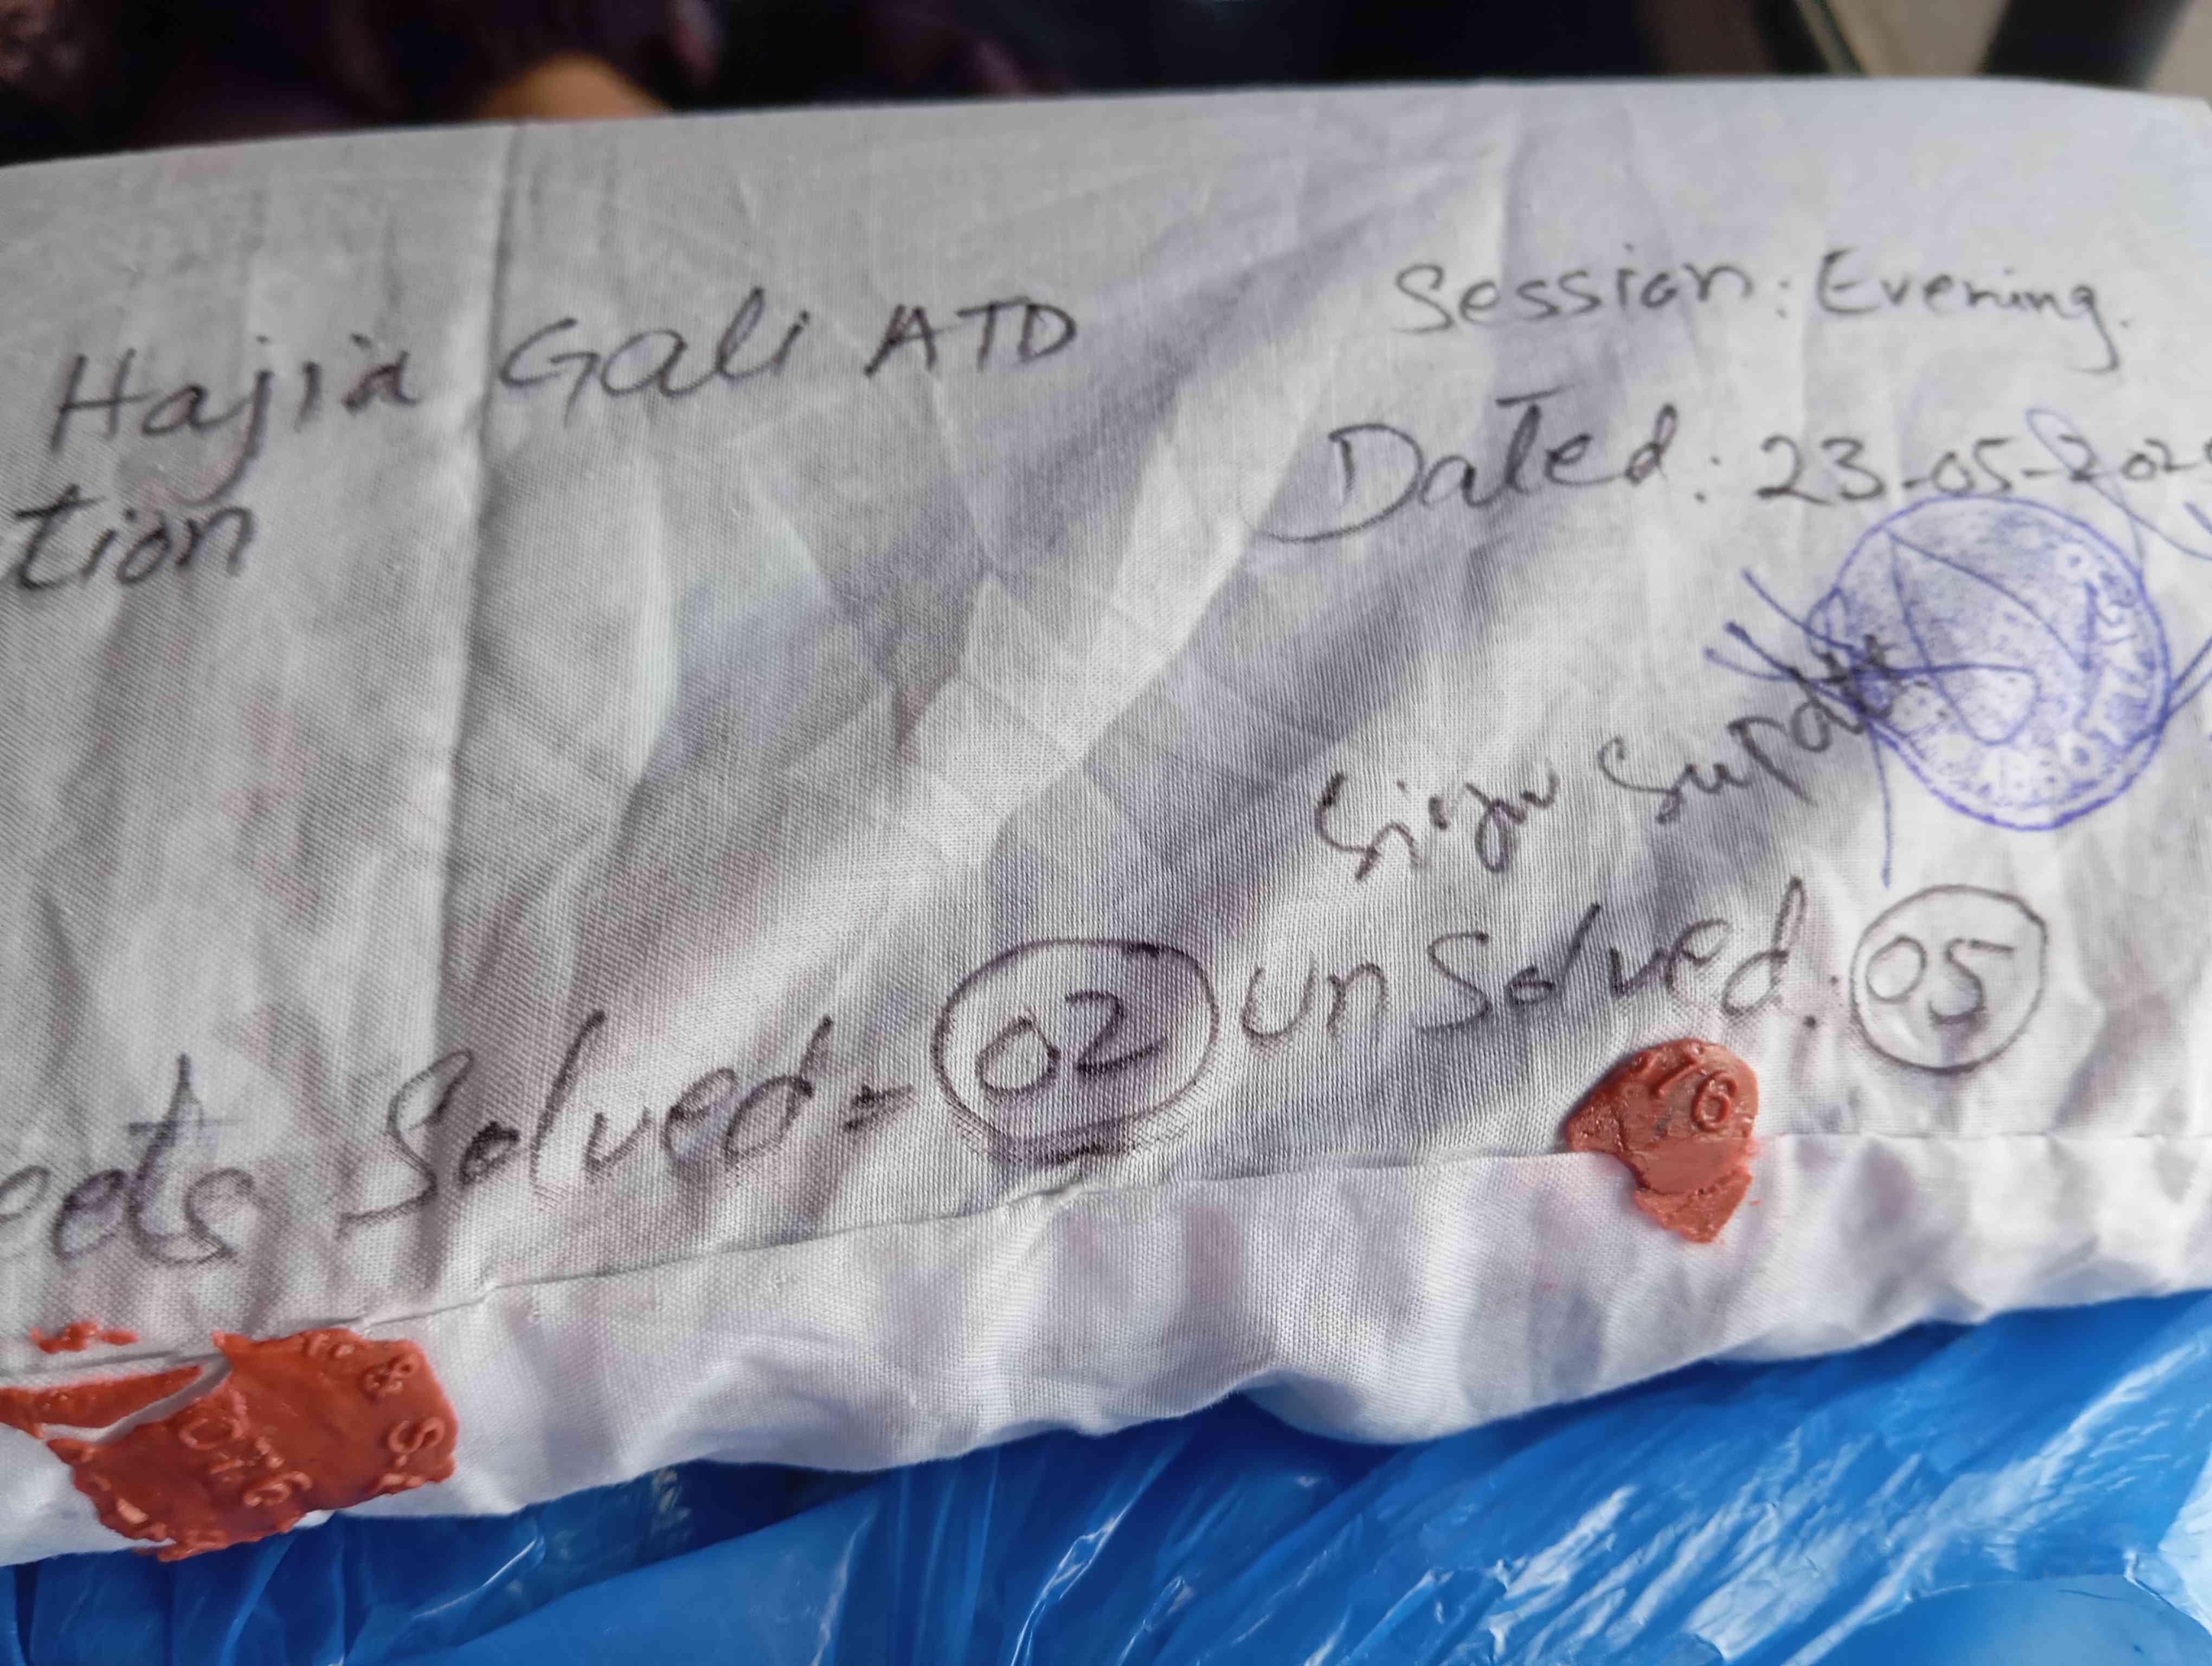 Hajia Gali ATD
Session: Evening.
tion
Dated: 23-05-202
Sign Supdtt
ABBOTTA
eets Solved = 02 unSolved: 05
76